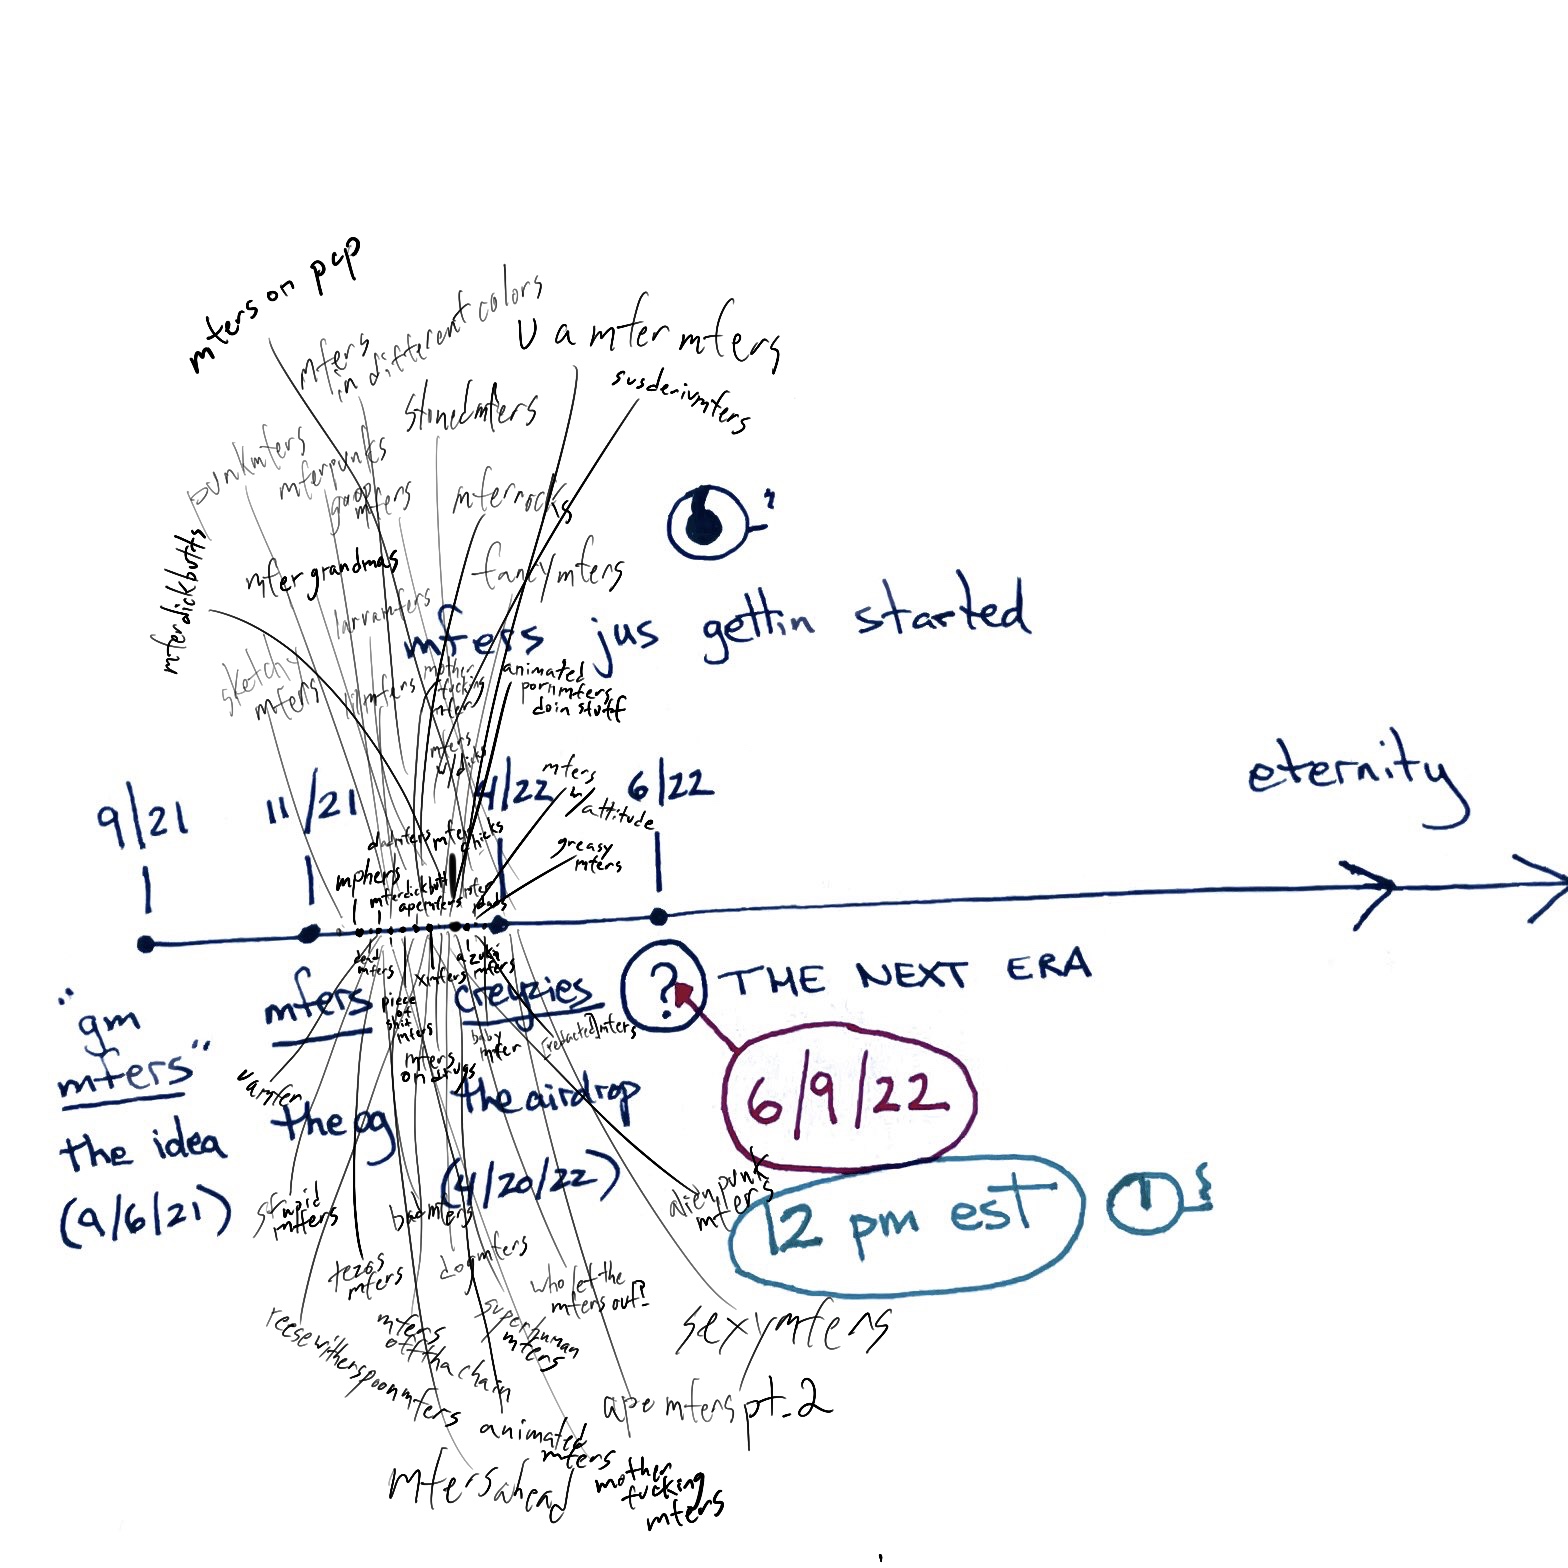 mfers on pcp
mfers
in different colors
u a mfer mfers
susderivmfers
stonedmfers
punkmfers
mferpunks
goop
mfers
mferrocks
mferdickbutts
mfer grandmas
fancymfers
larvamfers
mfers jus gettin started
sketchy
mfers
mother
fucking
mfer
animated
pornmfers
doin stuff
mfers
w/dicks
mfers
w/
attitude
greasy
mfers
9/21
11/21
4/22
6/22
eternity
mfer chicks
mphers
mferdickbutt
apemfers
dead
mfers
xmfers
azuki
mfers
"gm
mfers"
the idea
(9/6/21)
mfers
the og
piece
of
shit
mfers
creyzies
the airdrop
(4/20/22)
baby
mfer
[redacted]mfers
mfers
on drugs
? THE NEXT ERA
6/9/22
12 pm est
uamfer
stupid
mfers
badmfers
alienpunk
mfers
tezos
mfers
dogmfers
who let the
mfers out?
reesewitherspoonmfers
mfers
offtha chain
superhuman
mfers
sexymfers
ape mfers pt.2
animated
mfers
mfersahead
mother
fucking
mfers